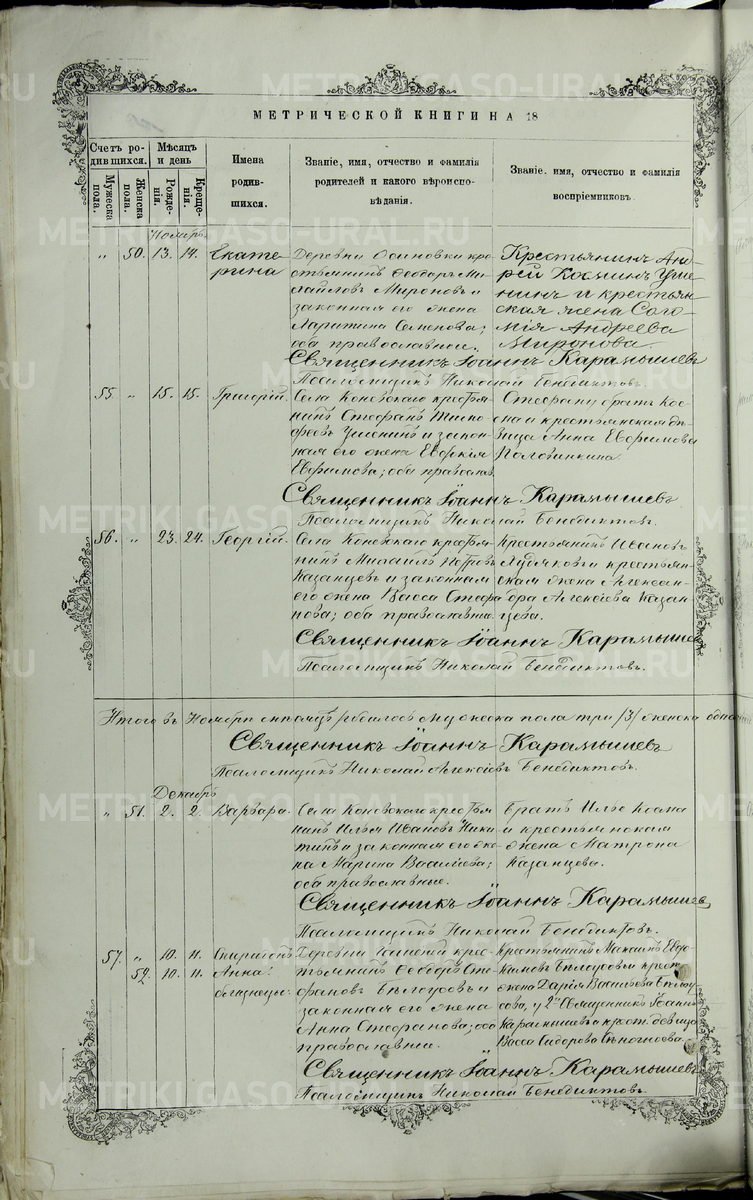 МЕТРИЧЕСКОЙ КНИГИ НА 18
Счетъ родившихся.
Мужеска пола.
Женска пола.
Мѣсяцъ и день
Рожденія.
Крещенія.
Имена
родив-
шихся.
Званіе, имя, отчество и фамилія
родителей и какого вѣроиспо-
вѣданія.
Званіе, имя, отчество и фамилія
воспріемниковъ.
Ноябрь
" 50. 13. 14. Екате-
рина
Деревни Осиновки кре-
стьянинъ Ѳеодоръ Ми-
хайловъ Мироновъ и
законная его жена
Семенова;
оба православные.
Крестьянинъ Анд-
рей Косминъ Уше-
нинъ и крестьян-
ская жена Соло-
мія Андреева
Миронова.
Священникъ Іоаннъ Карамышевъ
Псаломщикъ Николай Бенедиктовъ.
55. " 15. 15. Григорій.
Села Коневскаго крестья-
нинъ Стефанъ Тимо-
феевъ Ушенинъ и закон-
ная его жена Евдокія
Евфимова; оба православ.
Стефану братъ Кос-
ма и крестьянская дѣ-
вица Анна Евфимова
Половинкина.
Священникъ Іоаннъ Карамышевъ
Псаломщикъ Николай Бенедиктовъ.
56. " 23. 24. Георгій.
Села Коневскаго крестья-
нинъ Михаилъ Петровъ
Казанцевъ и законная
его жена Васса Стефа-
нова; оба православные
Крестьянинъ Иванъ
и крестьян-
ская жена Алексан-
дра Алексѣева Казан-
цева.
Священникъ Іоаннъ Карамышевъ
Псаломщикъ Николай Бенедиктовъ.
Итого въ Ноябрѣ мѣсяцѣ родилось мужеска пола три /3/ женска одна
Священникъ Іоаннъ Карамышевъ
Псаломщикъ Николай Алексѣевъ Бенедиктовъ.
Декабрь
" 51. 2. 2. Варвара.
Села Коневскаго крестья-
нинъ Илья Ивановъ Ники-
тинъ и законная его же-
на Марина Васильева;
оба православные.
Братъ Ильѣ
и крестьянская
жена Матрона
Казанцева.
Священникъ Іоаннъ Карамышевъ,
Псаломщикъ Николай Бенедиктовъ.
57. " 10. 11. Спиридонъ
52. 10. 11. Анна.
близнецы.
Деревни крес-
тьянинъ Ѳеодоръ Сте-
фановъ Бѣлоусовъ и
законная его жена
Анна Стефанова; оба
православные.
Крестьянинъ Максимъ Евдо-
кимовъ Бѣлоусовъ и крест.
жена Дарія Васильева Бѣлоу-
сова, у 2й Священникъ Іоаннъ
Карамышевъ и крест. девица
Васса Сидорова
Священникъ Іоаннъ Карамышевъ
Псаломщикъ Николай Бенедиктовъ.
METRIKI.GASO-URAL.RU